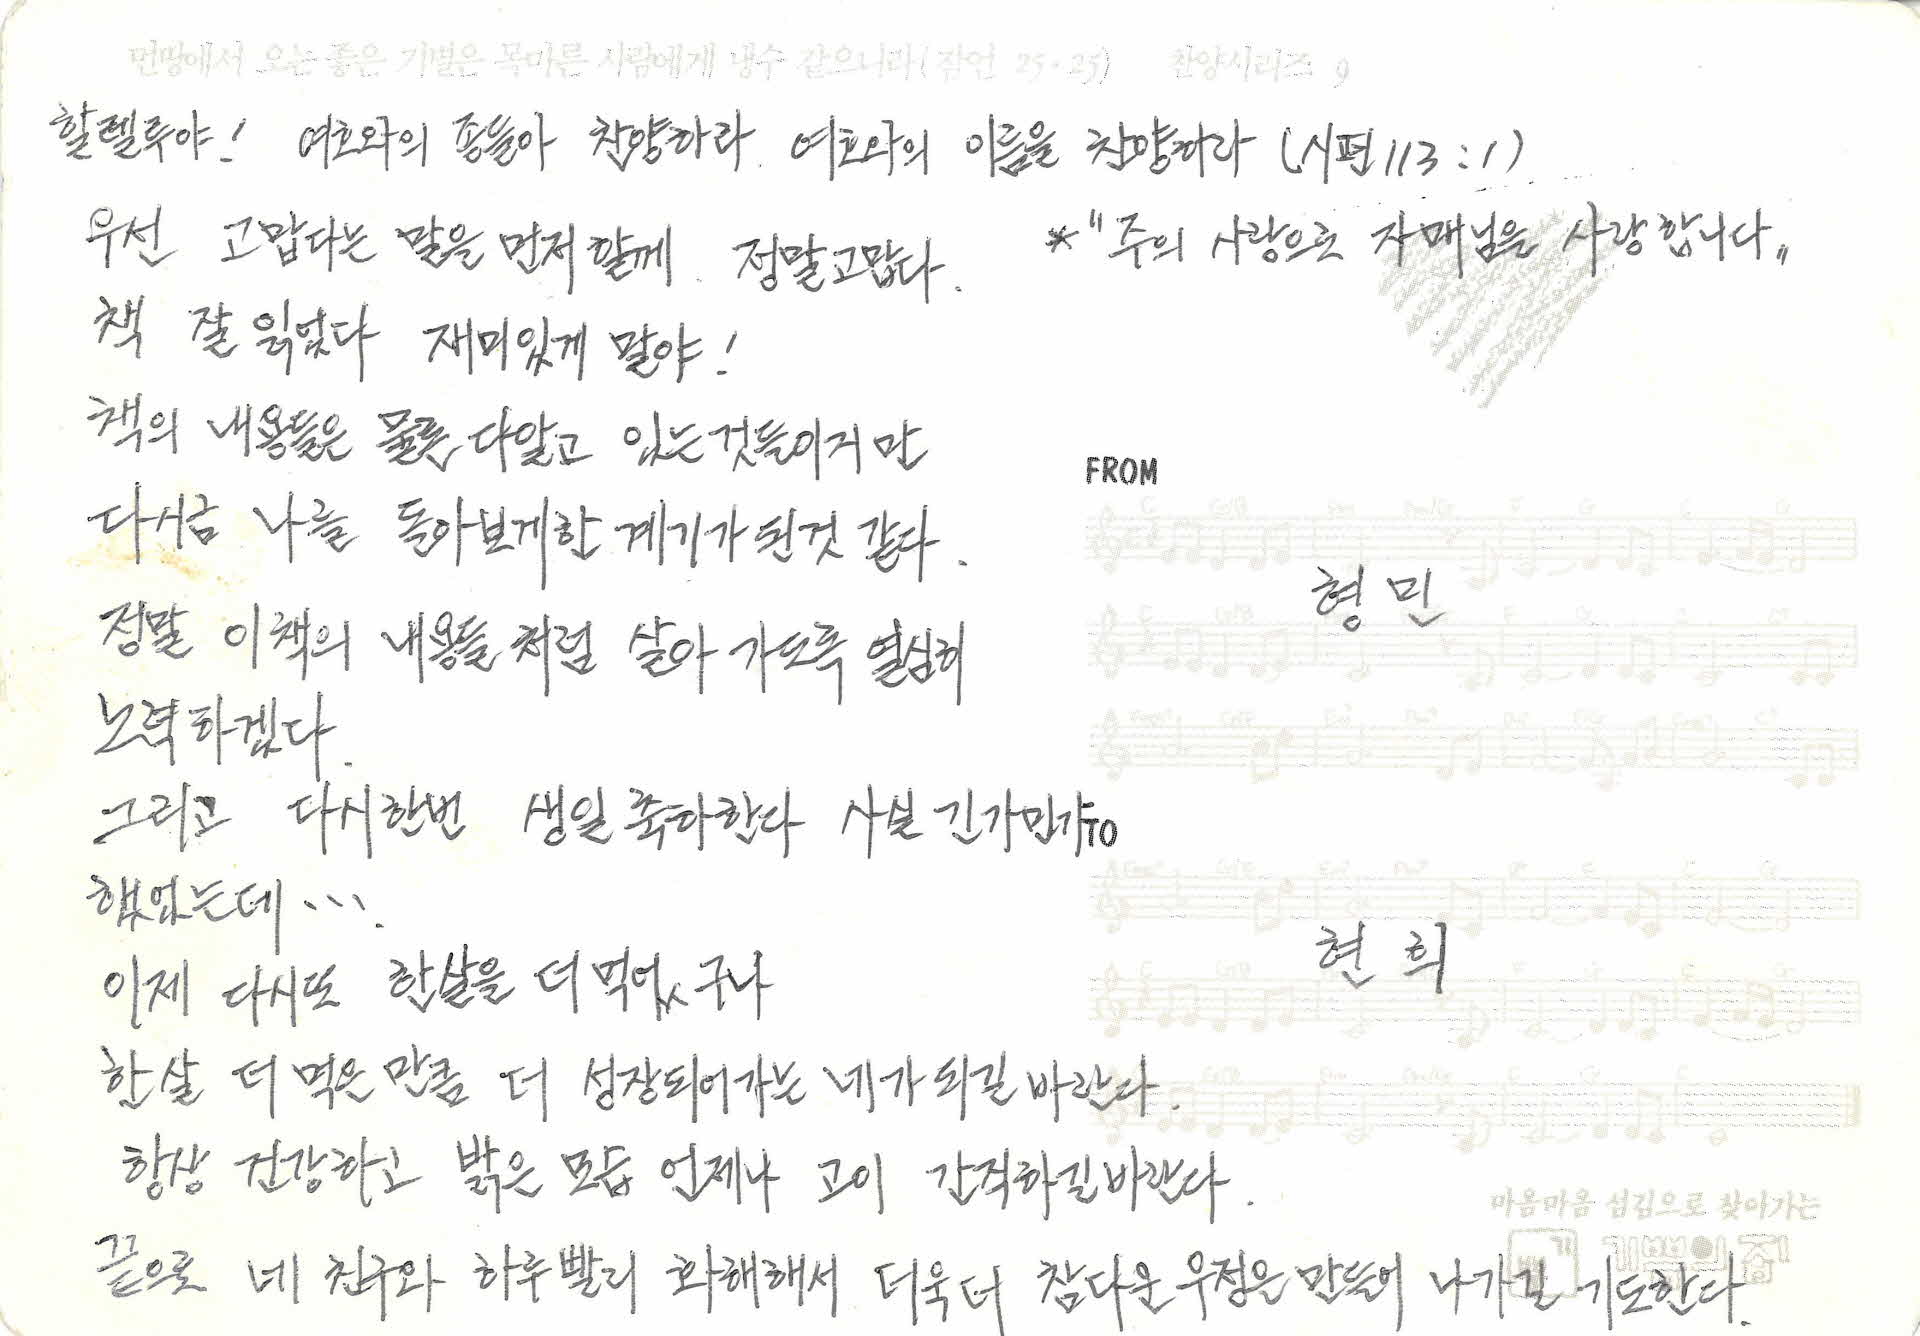 먼땅에서 오는 좋은 기별은 목마른 사람에게 냉수 같으니라 (잠언 25·25) 찬양시리즈 9
할렐루야! 여호와의 종들아 찬양하라. 여호와의 이름을 찬양하라 (시편 113:1)
우선 고맙다는 말을 먼저 할께. 정말고맙다.
*"주의 사랑으로 자매님을 사랑합니다"
책 잘 읽었다 재미있게 말야!
책의 내용들은 물론 다알고 있는것들이지만
다시금 나를 돌아보게한 계기가 된것 같다.
정말 이책의 내용들 처럼 살아 가도록 열심히
노력하겠다.
그리고 다시한번 생일 축하한다 사실 긴가민가
했었는데 ....
이제 다시또 한살을 더 먹었구나
한살 더 먹은 만큼 더 성장되어가는 네가 되길 바란다.
항상 건강하고 밝은 모습 언제나 고이 간직하길바란다.
끝으로 네 친구와 하루빨리 화해해서 더욱더 참다운 우정을 만들어 나가길 기도한다.
FROM
형민
TO
현희
마음마음 섬김으로 찾아가는
기쁨의 집